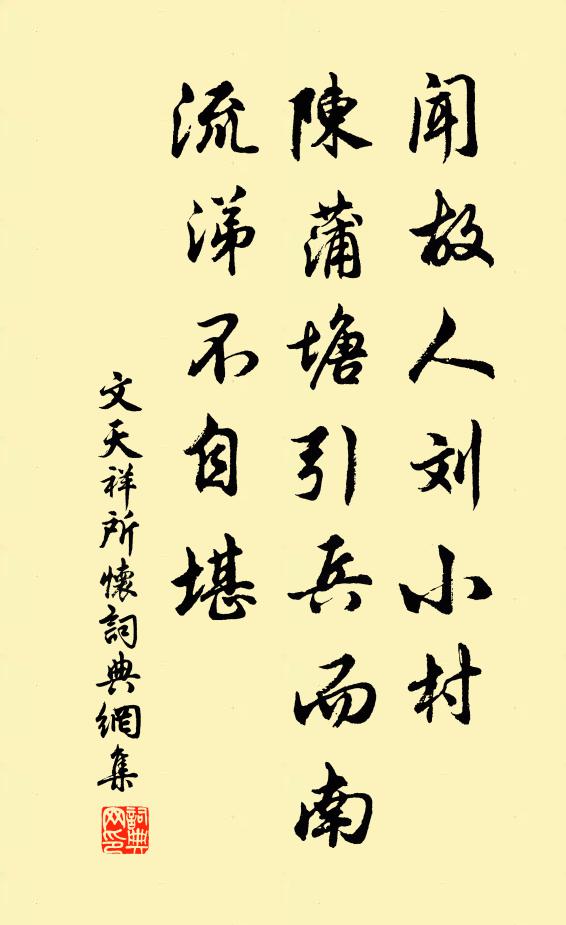 闻故人刘小村
陳蒲塘引兵而南
流涕不自堪
文天祥所懷詞典網集
詞典
网印